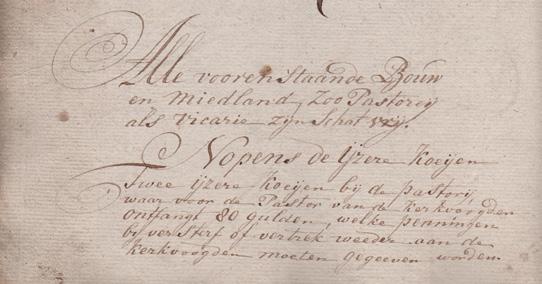 Alle voorenstaande Bouw
en Miedland, Zoo Pastorij
als Vicarie zijn Schat vrij.
Nopens de ijzere Koeijen
Twee ijzere Koeijen bij de pastorij,
waar voor de Pastor van de kerkvoogden
ontfangt 80 gulden, welke penningen
bij versterf of vertrek weeder aan de
kerkvoogden moeten gegeeven worden.